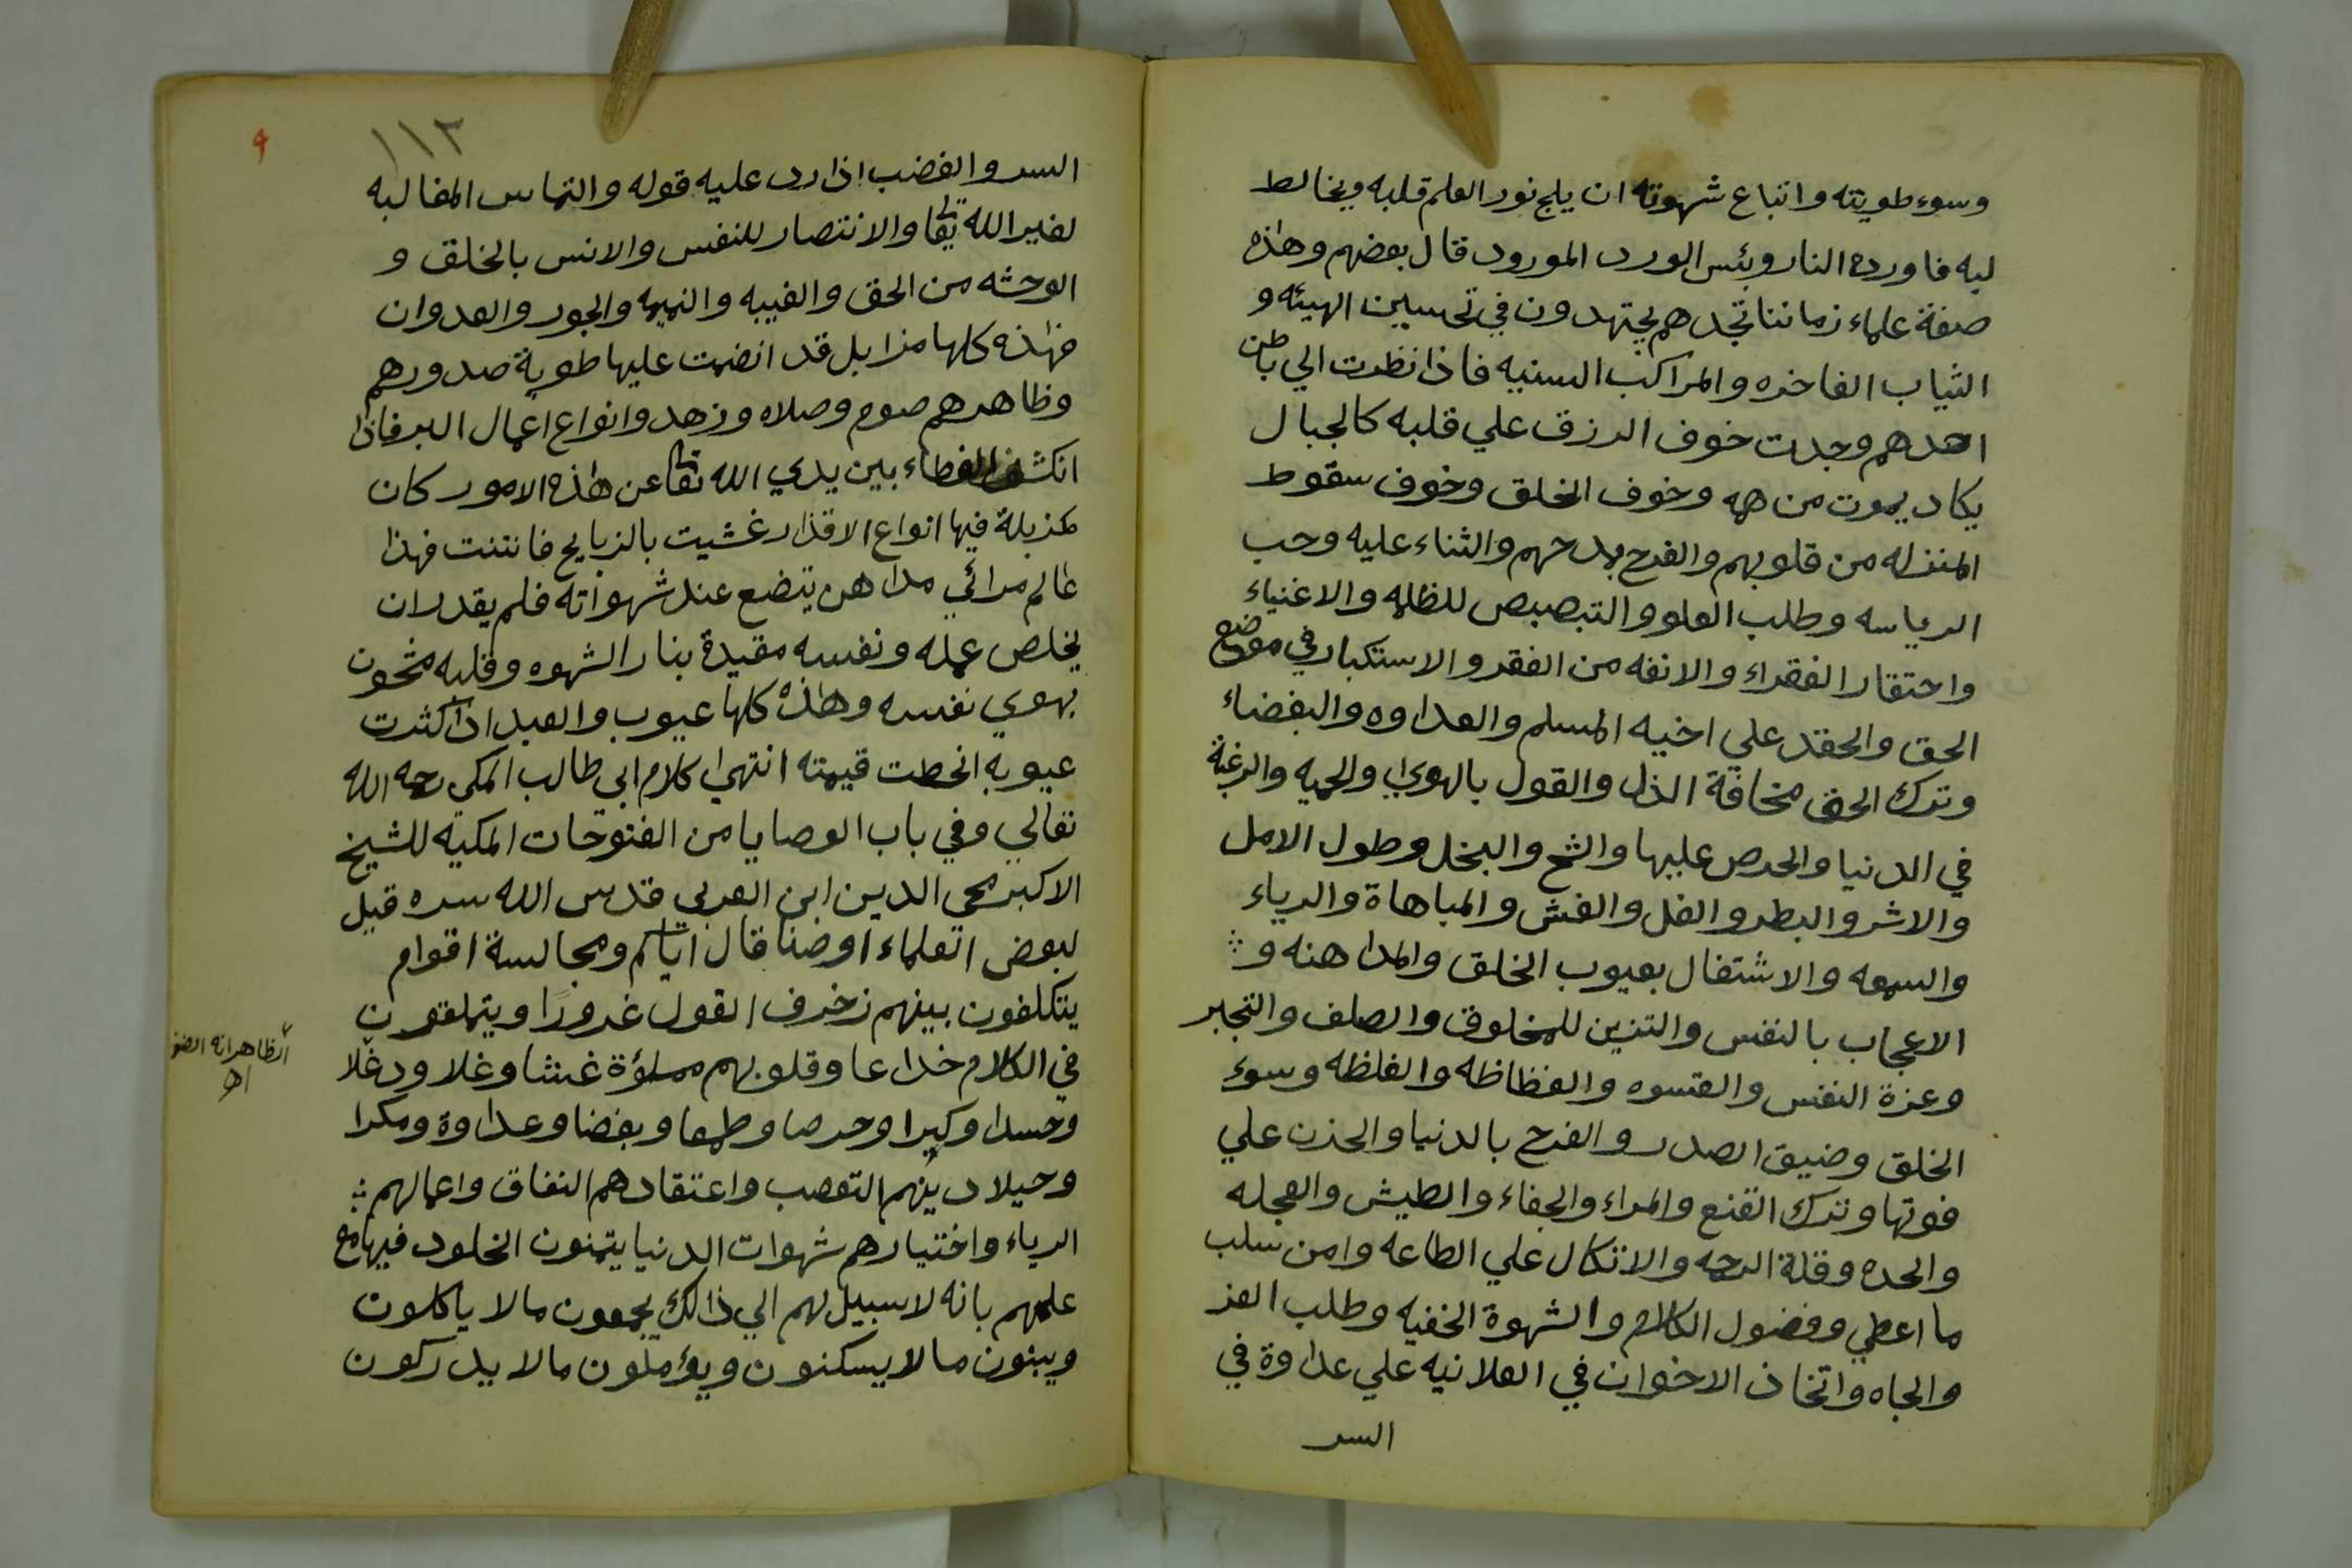 وسوء طويته واتباع شهوته ان يلج نور العلم قلبه ويخالط
لبه فاورده النار وبئس الورد المورود قال بعضهم وهذه
صفة علماء زماننا تجدهم يجتهدون في تحسين الهيئه و
الثياب الفاخره والمراكب السنيه فاذا نظرت الي باطن
احدهم وجدت خوف الرزق علي قلبه كالجبال
يكاد يموت من همه وخوف الخلق وخوف سقوط
المنزله من قلوبهم والفرح بمدحهم والثناء عليه وحب
الرياسه وطلب العلو والتبصبص للظلمه والاغنياء
واحتقار الفقراء والانفه من الفقر والاستكبار في موضع
الحق والحقد علي اخيه المسلم والعداوه والبغضاء
وترك الحق مخافة الذل والقول بالهوي والحميه والرغبة
في الدنيا والحرص عليها والشح والبخل وطول الامل
والاشر والبطر والغل والغش والمباهاة والرياء
والسمعه والاشتغال بعيوب الخلق والمداهنه و
الاعجاب بالنفس والتزين للمخلوق والصلف والتجبر
وعزة النفس والقسوه والفظاظه والغلظه وسوء
الخلق وضيق الصدر والفرح بالدنيا والحزن علي
فوتها وترك القنع والمراء والجفاء والطيش والعجله
والحده وقلة الرحمه والاتكال علي الطاعه وامن سلب
ما اعطي وفضول الكلام والشهوة الخفيه وطلب العز
والجاه واتخاذ الاخوان في العلانيه علي عداوة في
السر
١١٢
٩
السر والغضب اذا رد عليه قوله والتماس المغالبه
لغير الله تعالى والانتصار للنفس والانس بالخلق و
الوحشه من الحق والغيبه والنميمه والجور والعدوان
فهذه كلها مزابل قد انضمت عليها طوية صدورهم
وظاهرهم صوم وصلاه وزهد وانواع اعمال البر فاذا
انكشف الغطاء بين يدي الله تعالى عن هذه الامور كان
كمزبلة فيها انواع الاقذار غشيت بالزبايح فانتنت فهذا
عالم مرائي مداهن يتضع عند شهواته فلم يقدر ان
يخلص عمله ونفسه مقيدة بنار الشهوه وقلبه مشحون
بهوي نفسه وهذه كلها عيوب والعبد اذا كثرت
عيوبه انحطت قيمته انتهي كلام ابي طالب المكي رحمه الله
تعالي وفي باب الوصايا من الفتوحات المكيه للشيخ
الاكبر محي الدين ابن العربي قدس الله سره قيل
لبعض العلماء اوصنا قال اياكم ومجالسة اقوام
يتكلفون بينهم زخرف القول غرورًا ويتملقون
في الكلام خداعا وقلوبهم مملؤة غشا وغلا ودغلا
وحسدا وكبرا وحرصا وطمعا وبغضا وعداوة ومكرا
وحيلا دينهم التعصب واعتقادهم النفاق واعمالهم
الرياء واختيارهم شهوات الدنيا يتمنون الخلود فيها مع
علمهم بانه لا سبيل لهم الي ذالك يجمعون مالا ياكلون
ويبنون مالا يسكنون ويؤملون مالا يدركون
الظاهر انه
اه